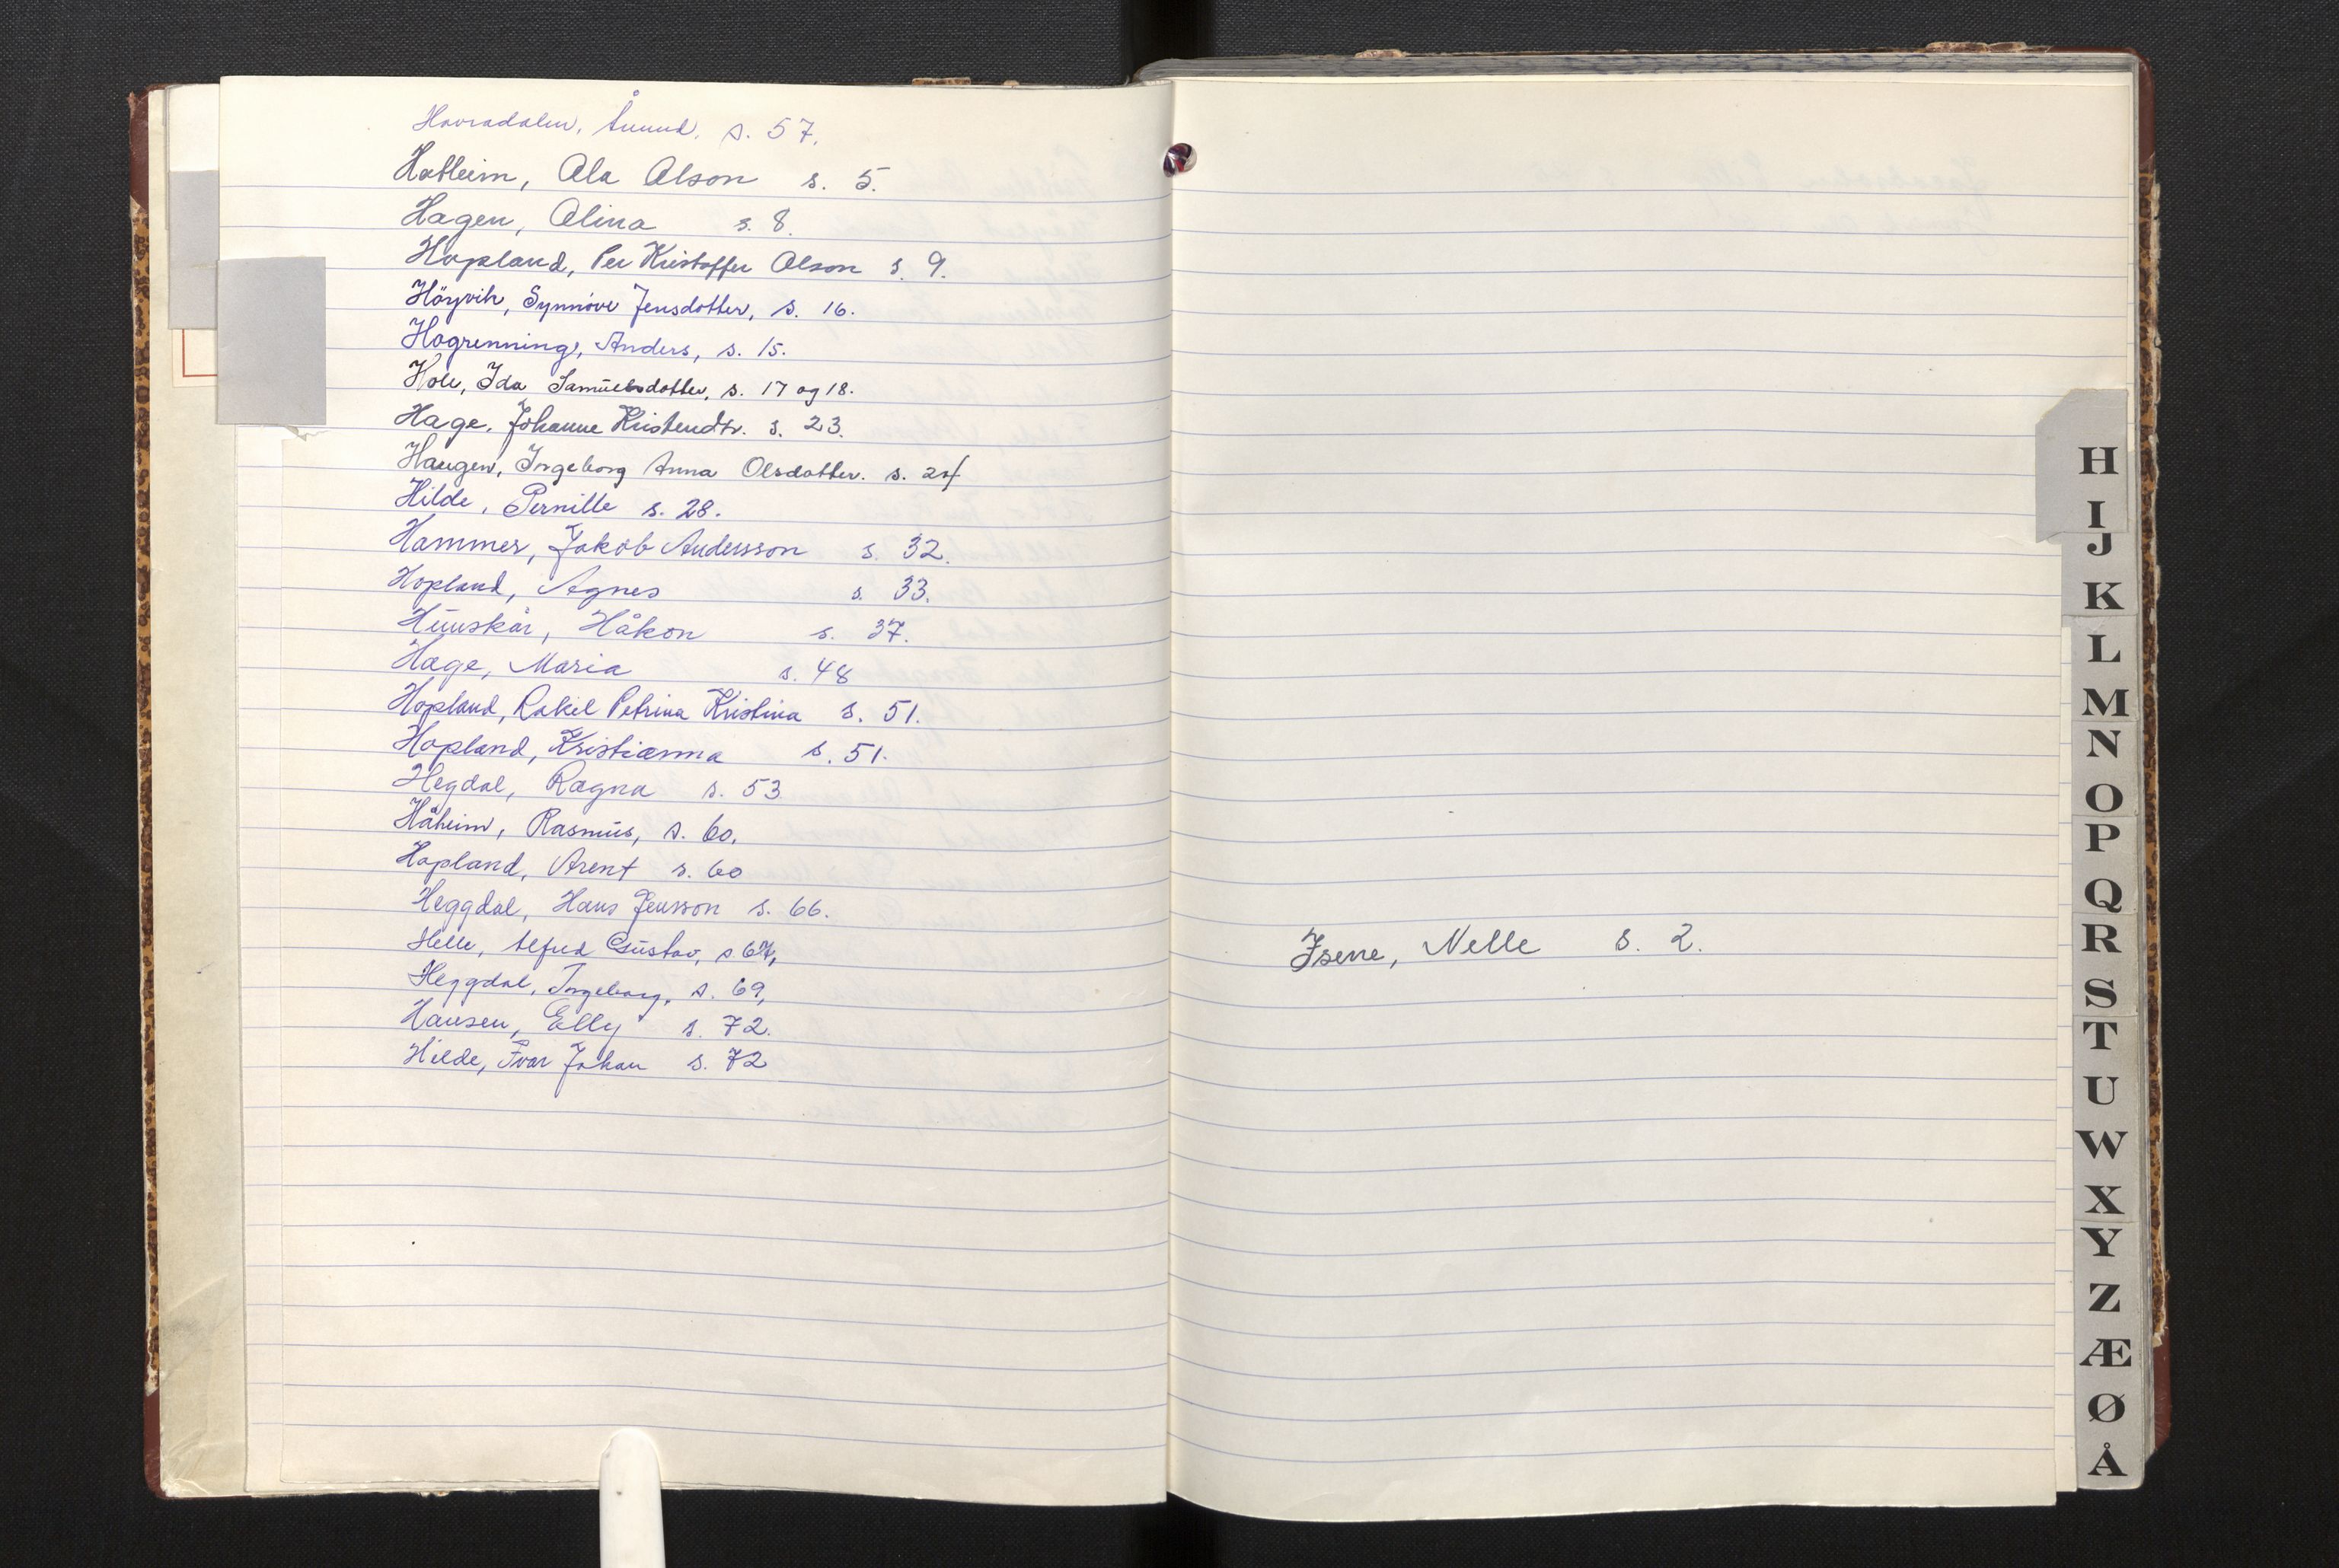 Havradalen, Ånund, s. 57.
Hatleim, Ola Olson s. 5.
Hagen, Olina s. 8.
Hopland, Per Kristoffer Olson s. 9.
Höyvik, Synnöve Jensdotter, s. 16.
Hogrenning, Anders, s. 15.
Hole, Ida Samuelsdotter, s. 17 og 18.
Hage, Johanne Kristendtr. s. 23.
Haugen, Ingeborg Anna Olsdotter. s. 24
Hilde, Pernille s. 28.
Hammer, Jakob Andersson s. 32.
Hopland, Agnes s. 33.
Huuskår, Håkon s. 37.
Hage, Maria s. 48
Hopland, Rakel Petrina Kristina s. 51.
Hopland, Kristianna s. 51.
Hegdal, Ragna s. 53
Håheim, Rasmus, s. 60.
Hopland, Arent s. 60
Heggdal, Hans Jensson s. 66.
Helle, Alfred Gustav, s. 67,
Heggdal, Ingeborg, s. 69,
Hansen, Elly s. 72.
Hilde, Ivar Johan s. 72
Isene, Nelle s. 2.
H
I
J
K
L
M
N
O
P
Q
R
S
T
U
W
X
Y
Z
Æ
Ø
Å